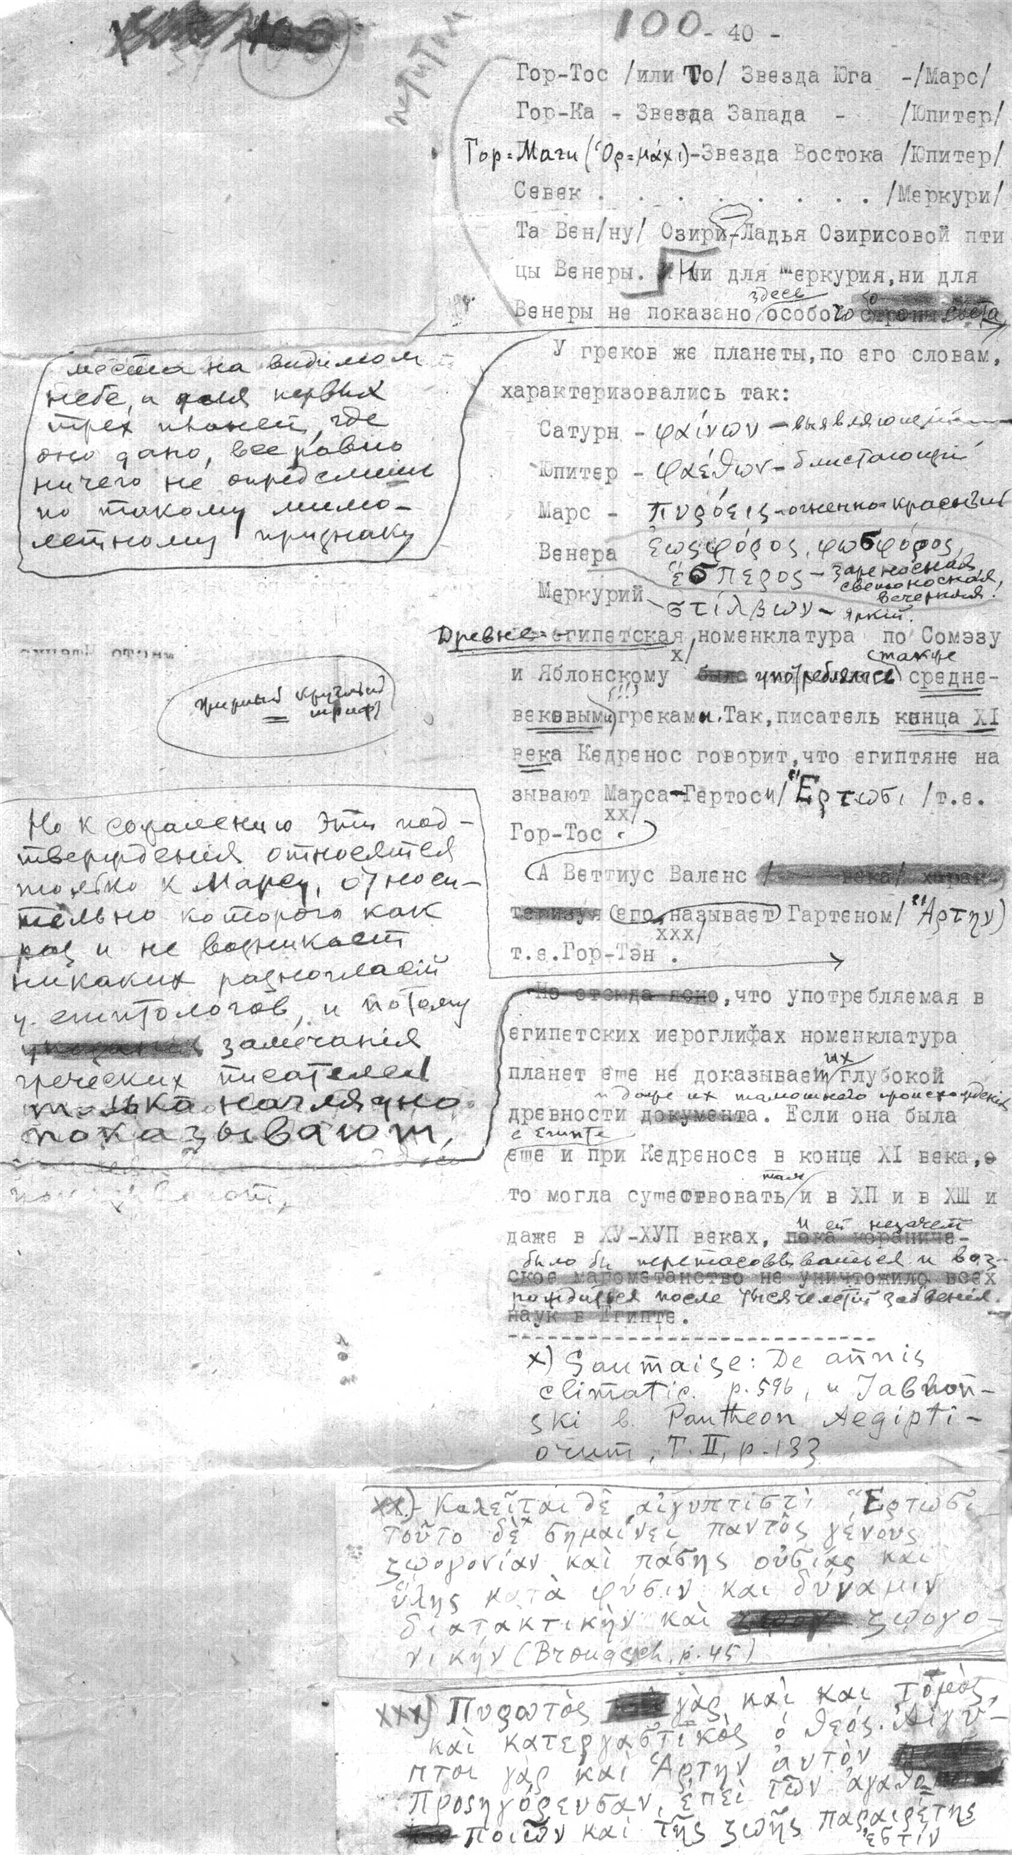 100 - 40 -
петитом
Гор-Тос /или То/ Звезда Юга -/Марс/
Гор-Ка - Звезда Запада - /Юпитер/
Гор=Маги (Ὁρ=μάχι)-Звезда Востока /Юпитер/
Севек . . . . . . . . /Меркури/
Та Вен/ну/ Озири-Ладья Озирисовой пти
цы Венеры. Ни для Меркурия,ни для
Венеры не показано здесь особого
места на видимом
небе, и для первых
трех планет, где
оно дано, все равно
ничего не определишь
по такому мимо-
летному признаку
У греков же планеты,по его словам,
характеризовались так:
Сатурн - φαίνων - выявляющий
Юпитер - φαέθων - блистающий
Марс - πυρόεις - огненно красный
Венера ἑωσφόρος, φωσφόρος,
ἕσπερος - зареносная
светоносная,
вечерняя.
Меркурий - στίλβων - яркий.
Древне-египетская номенклатура по Сомэзу
и Яблонскому x/ употреблялась также средне-
вековыми (!!!) греками. Так,писатель конца XI
века Кедренос говорит,что египтяне на
зывают Марса-Гертоси/Ἔρτωσι /т.е.
Гор-Тос xx/.
А Веттиус Валенс
его называет Гартеном/Ἄρτην)
т.е.Гор-Тэн xxx/.
жирный круглый
шрифт
Но к сожалению эти под-
тверждения относятся
только к Марсу, относи-
тельно которого как
раз и не возникает
никаких разногласий
у египтологов, и потому
замечания
греческих писателей
только наглядно
показывают,
что употребляемая в
египетских иероглифах номенклатура
планет еще не доказывает их глубокой
древности и даже их тамошнего происхождения. Если она была
в Египте
еще и при Кедреносе в конце XI века,
то могла существовать там и в ХП и в ХШ и
даже в ХУ-ХУП веках, и ей незачем
было бы перетасовываться и воз-
рождаться после тысячелетий забвения.
x) Saumaise: De annis
climatic. p. 596, и Jablon-
ski в Pantheon Aegipti-
orum, T. II, p. 133
xx) Καλεῖται δὲ αἰγυπτιστὶ Ἔρτωσι
τοῦτο δὲ σημαίνει παντὸς γένους
ζωογονίαν καὶ πάσης οὐσίας καὶ
ὕλης κατὰ φύσιν καὶ δύναμιν
διατακτικὴν καὶ ζωογο-
νικήν (Brougsch, p. 45)
xxx) Πυρωτὸς γὰρ καὶ καὶ τομὸς,
καὶ κατεργαστικὸς ὁ θεός. Αἰγύ-
πτοι γὰρ καὶ Ἄρτην αὐτὸν
προσηγόρευσαν, ἐπεὶ τῶν ἀγαθῶν
ποιῶν καὶ τῆς ζωῆς παραιρέτης
ἐστίν